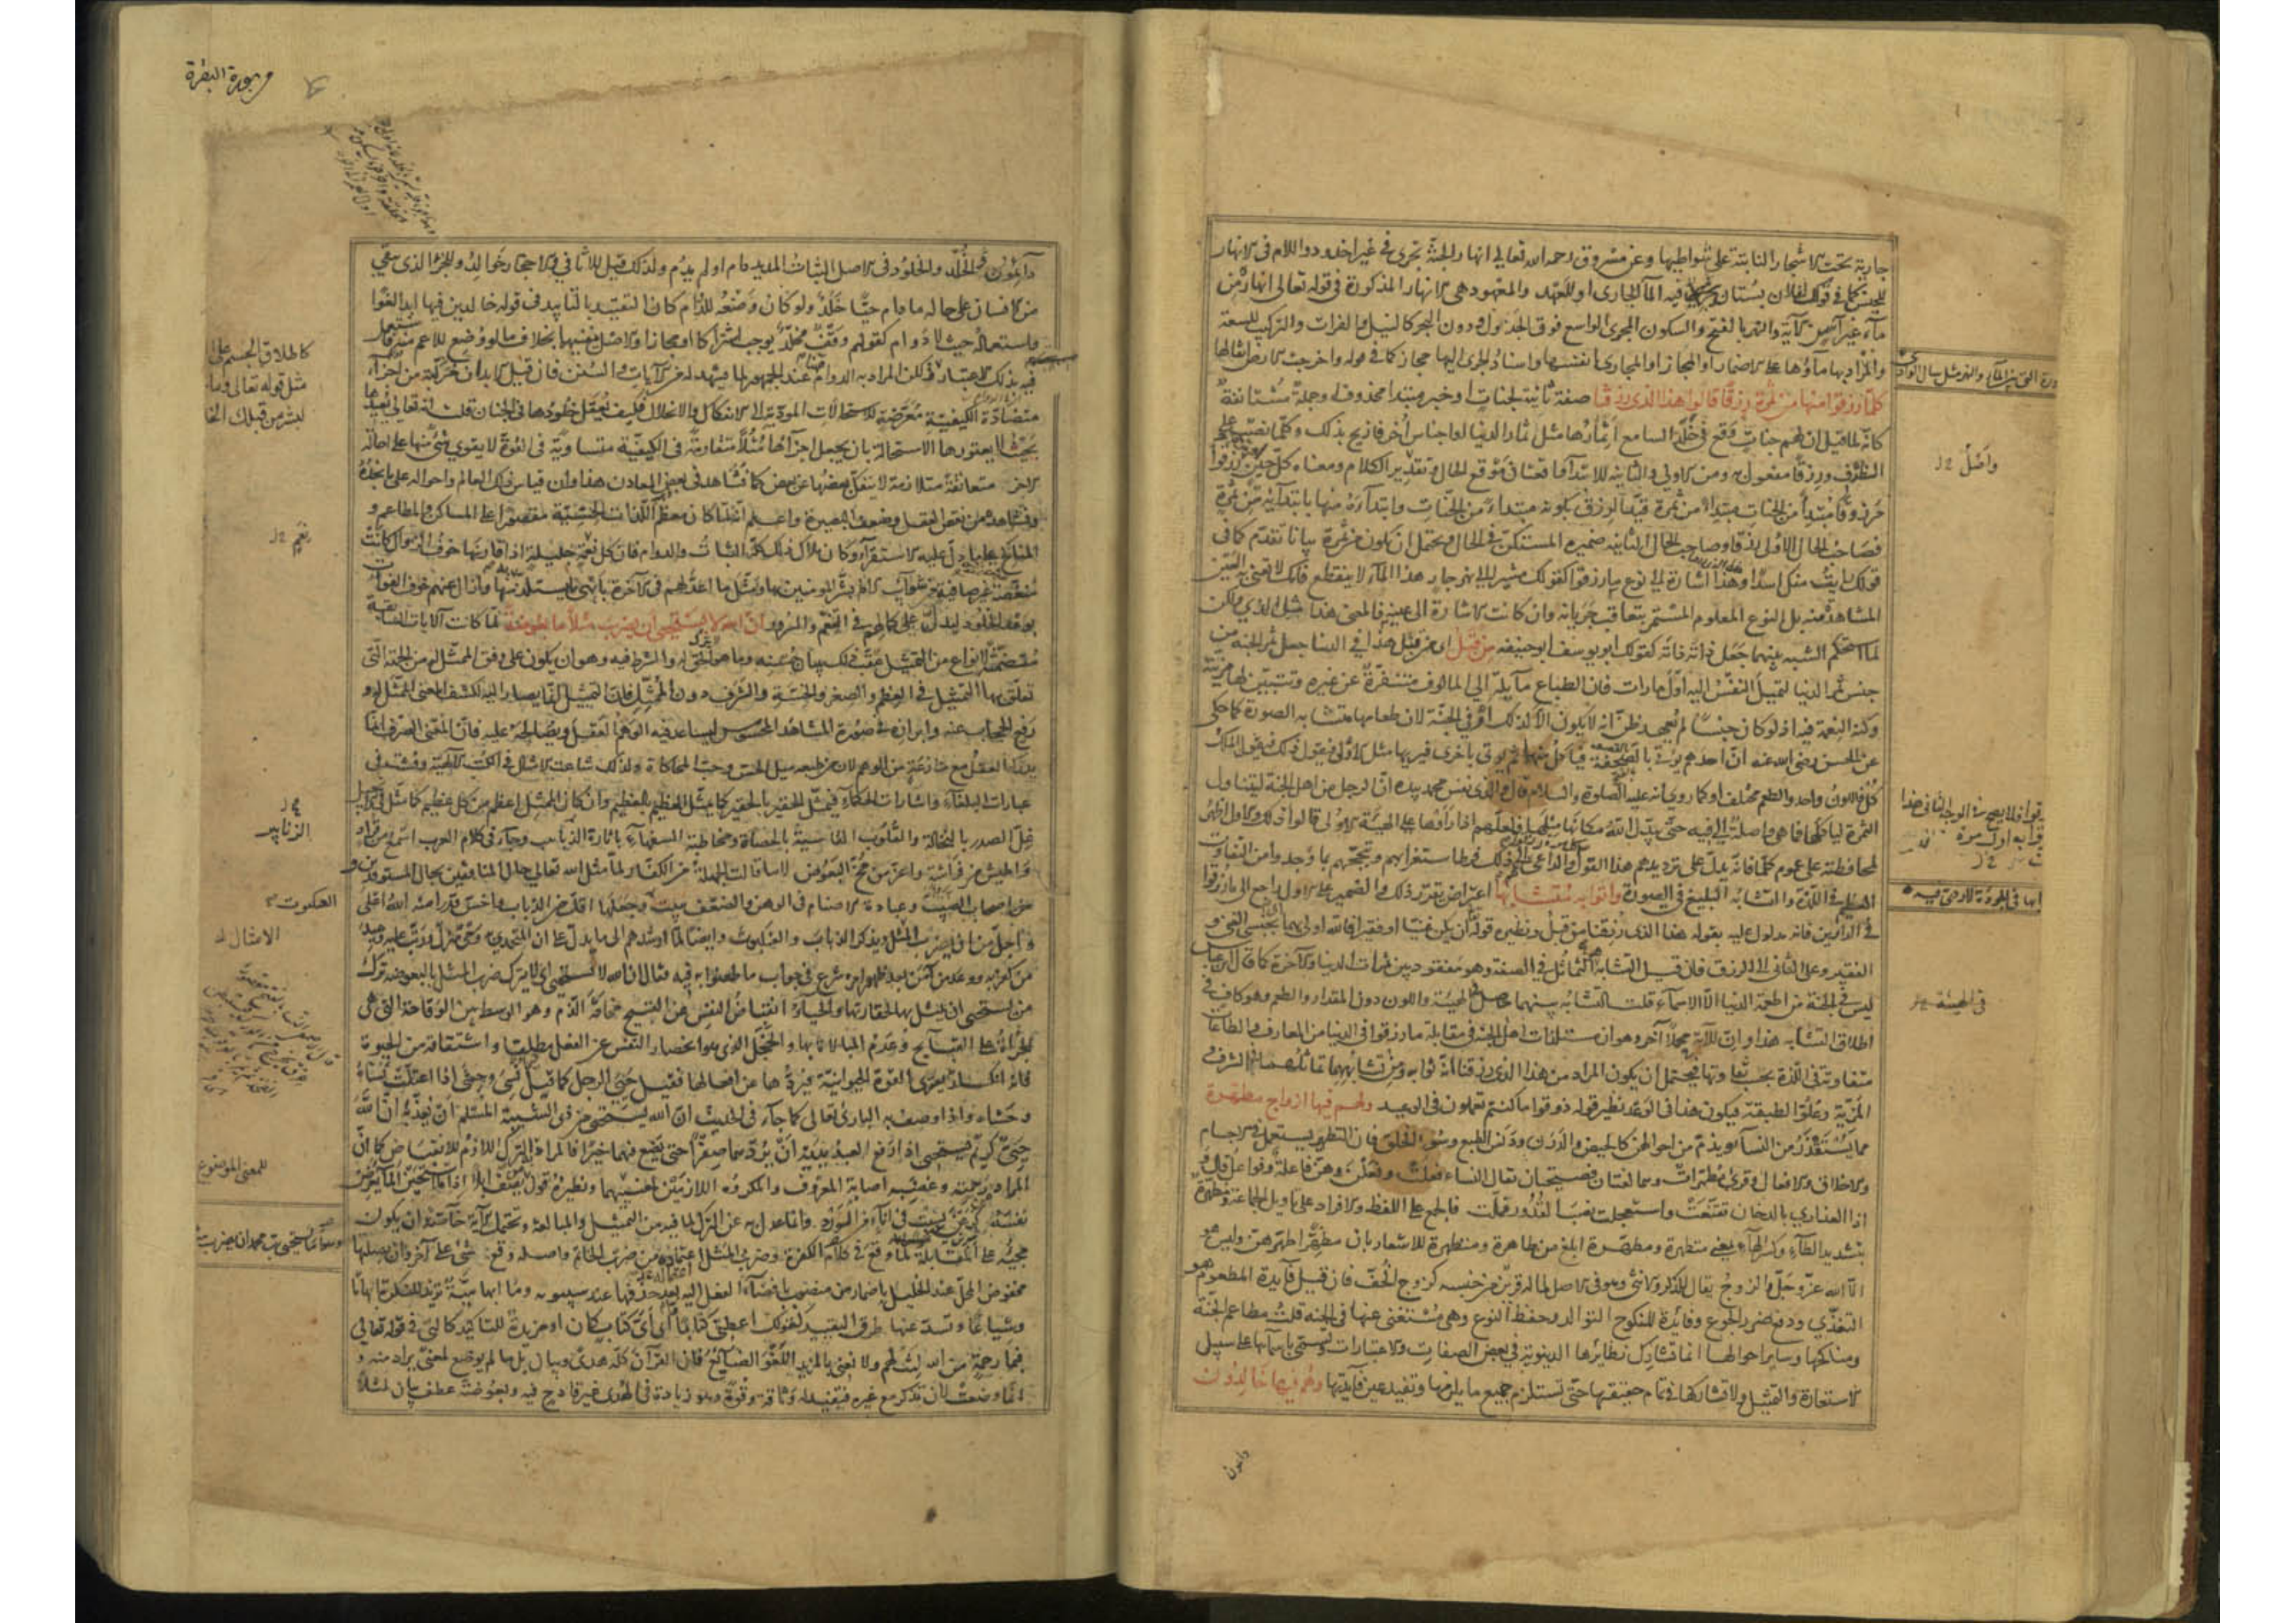 جارية تحت الاشجار النابتة على شواطيها وعن مسروق رحمه الله تعالى انهار الجنة تجرى في غير اخدود واللام في الانهار
للجنس كما في قولك لفلان بستان فيه الماء الجارى او للعهد والمعهود هي الانهار المذكورة في قوله تعالى انهار من
ماء غير آسن الآية والنهر بالفتح والسكون المجرى الواسع فوق الجدول ودون البحر كالنيل والفرات والتركيب للسعة
والمراد بها ماؤها على الاضمار او المجاز او المجارى انفسها واسناد الجرى اليها مجاز كما في قوله واخرجت الارض اثقالها
كلما رزقوا منها من ثمرة رزقا قالوا هذا الذى رزقنا صفة ثانية لجنات او خبر مبتدا محذوف او جملة مستانفة
كانه لما قيل ان لهم جنات وقع في خلد السامع اثمارها مثل ثمار الدنيا او اجناس اخر فازيح بذلك وكلما نصب على
الظرف ورزقا مفعول به ومن الاولى والثانية للابتداء واقعتان موقع الحال وتقدير الكلام ومعناه كل حين رزقوا
مرزوقا مبتدأ من الجنات مبتدأ من ثمرة قيد الرزق بكونه مبتدأ من الجنات وابتداؤه منها بابتدائه من ثمرة
فصاحب الحال الاولى رزقا وصاحب الحال الثانية ضميره المستكن في الحال ويحتمل ان يكون من ثمرة بيانا تقدم كما في
قولك رايت منك اسدا وهذا اشارة الى نوع ما رزقوا كقولك مشيرا الى نهر جار هذا الماء لا ينقطع فانك لا تعنى به العين
المشاهدة منه بل النوع المعلوم المستمر بتعاقب جريانه وان كانت الاشارة الى عينه فالمعنى هذا مثل الذى ولكن
لما استحكم الشبه بينهما جعل ذاته ذاته كقولك ابو يوسف ابو حنيفه من قبل اى من قبل هذا في الدنيا جعل ثمر الجنة من
جنس ثمر الدنيا لتميل النفس اليه اول ما رات فان الطباع مائلة الى المالوف متنفرة عن غيره وتتبين لها مزيته
وكنه النعمة فيه اذ لو كان جنسا لم يعهد ظن انه لا يكون الا كذلك او في الجنة لان طعامها متشابه الصورة كما حكى
عن الحسن رضى الله عنه ان احدهم يؤتى بالصحفة فياكل منها ثم يوتى باخرى فيريها مثل الاولى فيقول ذلك فيقول الملك
كل فاللون واحد والطعم مختلف او كما روى انه عليه الصلوة والسلام قال والذى نفس محمد بيده ان الرجل من اهل الجنة ليتناول
الثمرة لياكلها فما هي واصلة الى فيه حتى يبدل الله مكانها مثلها فلعلهم اذا راوها على الهيئة الاولى قالوا ذلك والاول اظهر
لمحافظته على عموم كلما فانه يدل على ترديدهم هذا القول والداعى لهم الى ذلك فرط استغرابهم وتبجحهم بما وجدوا من التفاوت
العظيم في اللذة والتشابه البليغ في الصورة واتوا به متشابها اعتراض يقرر ذلك والضمير على الاول راجع الى ما رزقوا
في الدارين فانه مدلول عليه بقوله هذا الذى رزقنا من قبل ونظيره قوله ان يكن غنيا او فقيرا فالله اولى بهما اى بجنسى الغنى و
الفقير وعلى الثانى الى الرزق فان قيل التشابه هو التماثل في الصفة وهو مفقود بين ثمرات الدنيا والآخرة كما قال ابن عباس
ليس في الجنة من اطعمة الدنيا الا الاسماء قلت التشابه بينهما حاصل في الهيئة واللون دون المقدار والطعم وهو كاف في
اطلاق التشابه هذا وان للآية محملا آخر وهو ان مستلذات اهل الجنة في مقابلة ما رزقوا في الدنيا من المعارف والطاعات
متفاوتة في اللذة بحسب تفاوتها فيحتمل ان يكون المراد من هذا الذى رزقنا انه ثوابه ومن تشابههما تماثلهما في الشرف
المزية وعلو الطبقة فيكون هذا في الوعد نظير قوله ذوقوا ما كنتم تعملون في الوعيد ولهم فيها ازواج مطهرة
مما يستقذر من النساء ويذم من احوالهن كالحيض والدرن ودنس الطبع وسوء الخلق فان التطهير يستعمل في الاجسام
والاخلاق والافعال وقرئ مطهرات وهما لغتان فصيحتان يقال النساء فعلت وفعلن وهن فاعلة وفواعل قال
اذا العذارى بالدخان تقنعت واستعجلت نصب القدور فملت فالجمع على اللفظ والافراد على تاويل الجماعة ومطهرة
بتشديد الطاء وكسر الهاء بمعنى متطهرة ومطهرة ابلغ من طاهرة ومتطهرة للاشعار بان مطهرا طهرهن وليس هو
الا الله عز وجل والزوج يقال للذكر والانثى وهو في الاصل لما له قرين من جنسه كزوج الخف فان قيل فايدة المطعوم هو
التغذى ودفع ضرر الجوع وفايدة المنكوح التوالد وحفظ النوع وهي مستغنى عنها في الجنة قلت مطاعم الجنة
ومناكحها وساير احوالها انما تشارك نظائرها الدنيوية في بعض الصفات والاعتبارات وتسمى باسمائها على سبيل
الاستعارة والتمثيل ولا تشاركها في تمام حقيقتها حتى تستلزم جميع ما يلزمها وتفيد عين فائدتها وهم فيها خالدون
واصل
في الهيئة
دائمون
سورة البقرة
دائمون والخلد والخلود في الاصل الثبات المديد دام او لم يدم ولذلك قيل للاثافى والاحجار خوالد وللجزء الذى يبقى
من الانسان على حاله ما دام حيا خلد ولو كان وضعه للدوام كان التقييد بالتابيد في قوله خالدين فيها ابدا لغوا
واستعماله حيث لا دوام كقولهم وقف مخلد يوجب اشتراكا او مجازا والاصل ينفيهما بخلاف ما لو وضع للاعم منه فاستعمل
فيه بذلك الاعتبار لكن المراد به الدوام هنا عند الجمهور لما يشهد له من الآيات والسنن فان قيل الابدان مركبة من اجزاء
متضادة الكيفية معرضة للاستحالات المودية الى الانفكاك والانحلال فكيف يعقل خلودها في الجنان قلت انه تعالى يعيدها
بحيث لا يعتورها الاستحالة بان يجعل اجزاءها مثلا متقاومة في الكيفية متساوية في القوة لا يقوى شئ منها على احالة
الآخر متعانقة متلازمة لا ينفك بعضها عن بعض كما نشاهد في بعض المعادن هذا وان قياس ذلك العالم واحواله على ما نجده
ونشاهده من نقص العقل وضعف البصيرة واعلم انه لما كان معظم اللذات الحسية مقصورا على المساكن والمطاعم و
المناكح على ما دل عليه الاستقراء وكان ملاك ذلك كله الثبات والدوام فان كل نعمة جليلة اذا قارنها خوف الزوال كانت
منغصة غير صافية من شوائب الالم بشر المومنين بها ومثل ما اعد لهم في الآخرة بابهى ما يستلذ منها وازال عنهم خوف الفوات
بوعد الخلود ليدل على كمالهم في التنعم والسرور ان الله لا يستحيى ان يضرب مثلا ما بعوضة لما كانت الآيات السابقة
متضمنة لانواع من التمثيل عقب ذلك ببيان حسنه وما هو الحق له والشرط فيه وهو ان يكون على وفق الممثل له من الجهة التى
تعلق بها التمثيل في العظم والصغر والخسة والشرف دون الممثل فان التمثيل انما يصار اليه لكشف المعنى الممثل له و
رفع الحجاب عنه وابرازه في صورة المشاهد المحسوس ليساعد فيه الوهم العقل ويصالحه عليه فان المعنى الصرف انما
يدركه العقل مع منازعة من الوهم لان من طبعه ميل الحس وحب المحاكاة ولذلك شاعت الامثال في الكتب الالهية وفشت في
عبارات البلغاء واشارات الحكماء فيمثل الحقير بالحقير كما يمثل العظيم بالعظيم وان كان الممثل اعظم من كل عظيم كما مثل في الانجيل
غل الصدر بالنخالة والقلوب القاسية بالحصاة ومخاطبة السفهاء باثارة وجاء في كلام العرب اسمع من قراد
واطيش من فراشة واعز من مخ البعوض لا ما قالت الجهلة من الكفار لما مثل الله تعالى حال المنافقين بحال المستوقدين و
اصحاب الصيب وعبادة الاصنام في الوهن والضعف ببيت وجعلها اقل من الذباب واخس قدرا منه الله اعلى
واجل من ان يضرب المثل ويذكر الذباب والعنكبوت وايضا لما ارشدهم الى ما يدل على ان المتحدى به وحى منزل ورتب عليه وعيد
من كفر به ووعد من آمن بعد ظهور امره شرع في جواب ما طعنوا به فيه فقال ان الله لا يستحيى اى لا يترك ضرب المثل بالبعوضة ترك
من يستحيى ان يمثل بها لحقارتها والحياء انقباض النفس عن القبيح مخافة الذم وهو الوسط بين الوقاحة التى هي
الجرأة على القبايح وعدم المبالاة بها والخجل الذى هو انحصار النفس عن الفعل مطلقا واشتقاقه من الحيوة
فانه انكسار يعترى القوة الحيوانية فيردها عن افعالها فقيل حيى الرجل كما قيل نسى وحشى اذا اعتلت نساه
وحشاه واذا وصف به البارى تعالى كما جاء في الحديث ان الله يستحيى من ذى الشيبة المسلم ان يعذبه ان الله
حيى كريم يستحيى اذا رفع العبد يديه ان يردهما صفرا حتى يضع فيهما خيرا فالمراد به الترك اللازم للانقباض كما ان
المراد من رحمته وغضبه اصابة المعروف والمكروه اللازمين لمعنييهما ونظيره قول من يصف ابلا اذا ما استحين الماء يعرض
نفسه كرعن بسبت في اناء من الورد وانما عدل به عن الترك لما فيه من التمثيل والمبالغة ويحتمل الآية خاصة ان يكون
مجيئه على المقابلة لما وقع في كلام الكفرة وضرب المثل اعتماله من ضرب الخاتم واصله وقع شئ على آخر وان بصلتها
مخفوض المحل عند الخليل باضمار من منصوب بافضاء الفعل اليه بعد حذفها عند سيبويه وما ابهامية تزيد النكرة ابهاما
وشياعا وتسد عنها طرق التقييد كقولك اعطنى كتابا ما اى اى كتاب كان او مزيدة للتاكيد كالتى في قوله تعالى
فبما رحمة من الله لنت لهم ولا نعنى بالمزيد اللغو الضائع فان القرآن كله هدى وبيان بل ما لم يوضع لمعنى يراد منه و
انما وضعت لان تذكر مع غيره فتفيد له وثاقة وقوة وهو زيادة في الهدى غير قادح فيه وبعوضة عطف بيان لمثلا
كاطلاق الجسم على
مثل قوله تعالى وما
لبشر من قبلك الخلد
الزنابير
العنكبوت
الامثال
للمعنى الموضوع